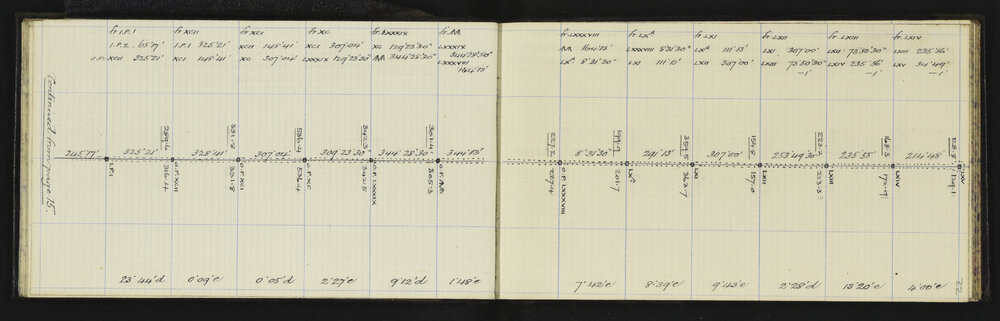 fr I.P.I
I.P.2. 65°17'
O.P. XCII 325°21'
fr XCII
I.P.I 325°21'
XCI 148°41'
fr XCI
XCII 148°41'
XC 307°04'
fr XC
XCI 307°04'
LXXXIX 129°23'30"
fr LXXXIX
XC 129°23'30"
AA 344°28'30"
fr AA
LXXXIX 344°28'30"
LXXXVIII 164°13'
fr LXXXVIII
AA 164°13'
LXA 8°31'30"
fr LXA
LXXXVIII 8°31'30"
LXI 111°13'
fr LXI
LXA 111°13'
LXII 307°00'
fr LXII
LXI 307°00'
LXIII 73°50'30"
—1'
fr LXIII
LXII 73°50'30"
LXIV 235°56'
—1'
fr LXIV
LXIII 235°56'
LXV 34°49'
—1'
Continued from page 15.
289.6
331.2
536.4
342.3
301.4
257.2
199.9
359.5
154.8
223.2
168.3
123.8
245°17'
325°21'
328°41'
307°04'
309°23'30"
344°28'30"
344°13'
8°31'30"
291°13'
307°00'
253°49'30"
235°55'
214°48'
I.P.I
O.P. XCII
O.P. XCI
O.P. XC
O.P. LXXXIX
O.P. AA
O.P. LXXXVIII
LXA
LXI
LXII
LXIII
LXIV
LXV
310.4
331.8
536.4
342.5
305.3
227.4
201.7
363.7
157.0
223.3
172.9
129.1
23°44'd
0°09'e
0°05'd
2°27'e
9°12'd
1°48'e
7°42'e
8°39'e
9°43'e
2°28'd
13°20'e
4°00'e
22